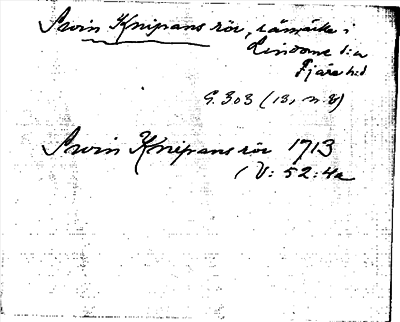 Swin Knipans rör, råmärke i
Lindome s:n
Fjäre hd
G. 303 (13, n. 8)
Swin Knipans rör 1713
1 V: 52: 4a